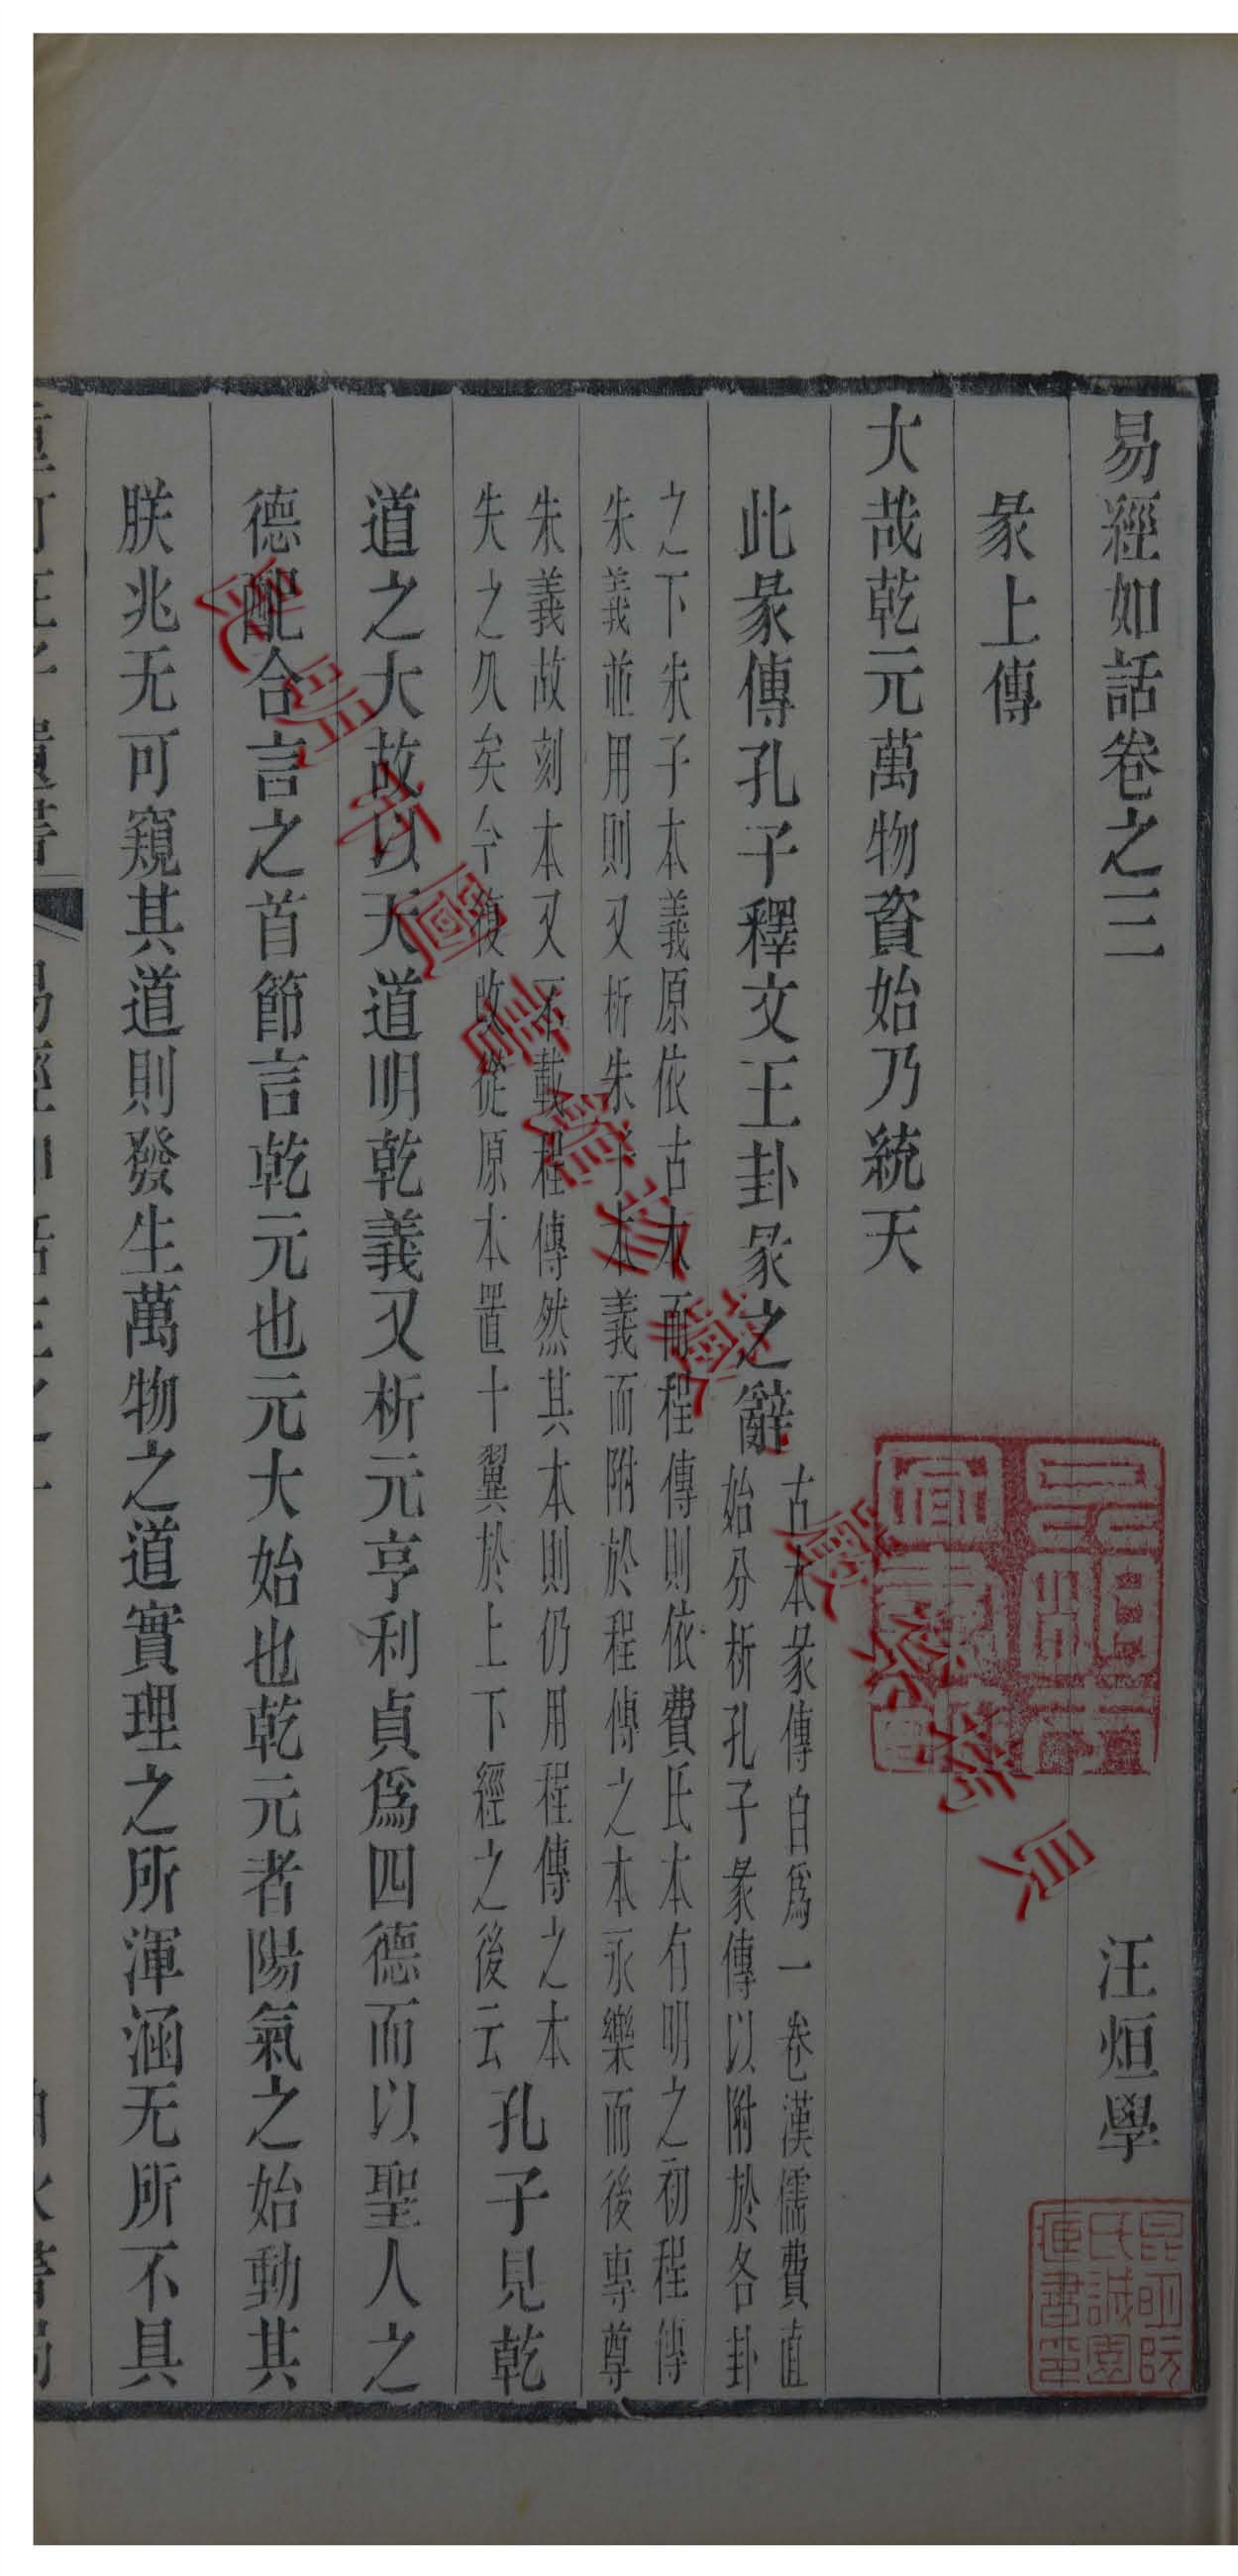 易經如話卷之三 汪烜學
彖上傳
大哉乾元萬物資始乃統天
此彖傳孔子釋文王卦彖之辭
古本彖傳自爲一卷漢儒費直
始分析孔子彖傳以附於各卦
之下朱子本義原依古本而程傳則依費氏本有明之初程傳
朱義並用則又析朱子本義而附於程傳之本永樂而後專尊
朱義故刻本又不載程傳然其本則仍用程傳之本
失之久矣今復改從原本置十翼於上下經之後云
孔子見乾
道之大故以天道明乾義又析元亨利貞爲四德而以聖人之
德配合言之首節言乾元也元大始也乾元者陽氣之始動其
朕兆无可窺其道則發生萬物之道實理之所渾涵无所不具
昆明市圖書館珍藏 嚴禁拷貝
昆明市
圖書館